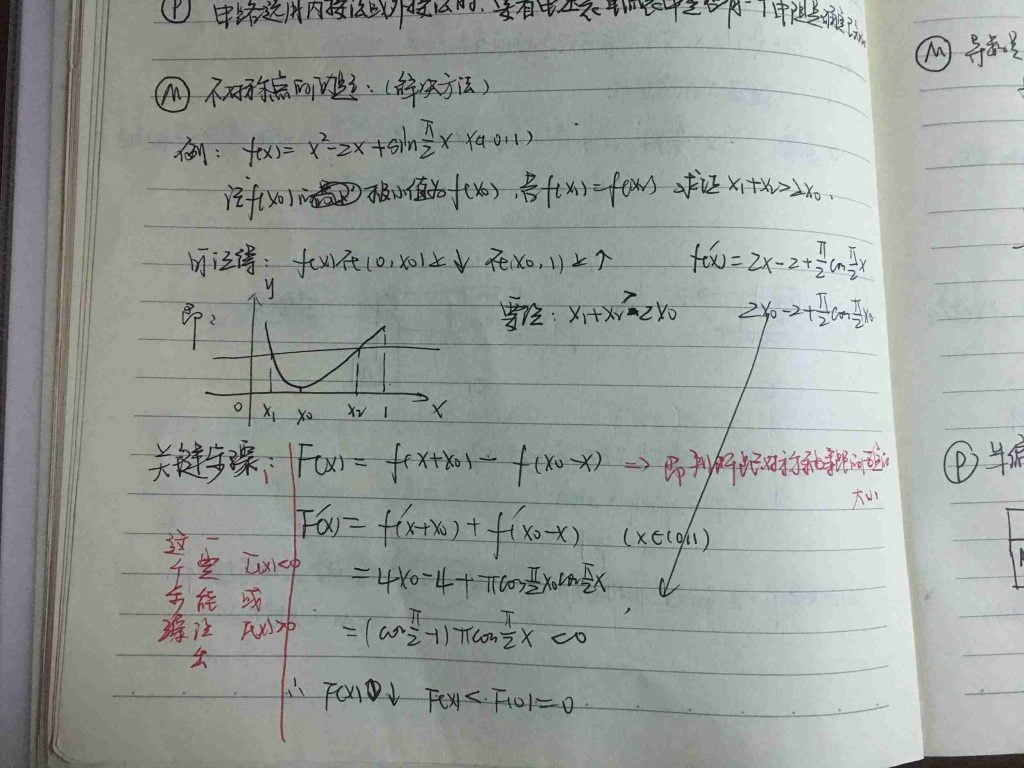 Ⓟ 电路选用内接法或外接法时,要看电压表电流表中是否有一个电阻是
Ⓜ 不对称点的问题:(解决方法)
例: f(x)= x²-2x+sin π/2 x x∈(0,1)
注f(x0) 极小值为f(x0),若f(x1)=f(x2) 求证 x1+x2>2x0.
可证得: f(x)在(0,x0)上↓ 在(x0,1)上↑ f'(x)=2x-2+π/2 cos π/2 x
即: y 要证: x1+x2>2x0 2x0-2+π/2 cos π/2 x0
0 x1 x0 x2 1 x
关键步骤: F(x)= f(x+x0)- f(x0-x) → 即判断 对称轴等距
大小
F'(x)= f'(x+x0)+ f'(x0-x) (x∈(0,1)
= 4x0-4+πcos π/2 x0 cos π/2 x
= (cos π/2 -1)πcos π/2 x <0
∴ F(x)↓ F(x)< F(0)=0
这一
个定 F(x)<0
步能 或
骤证 F(x)>0
出
Ⓜ 导数
Ⓟ 半偏